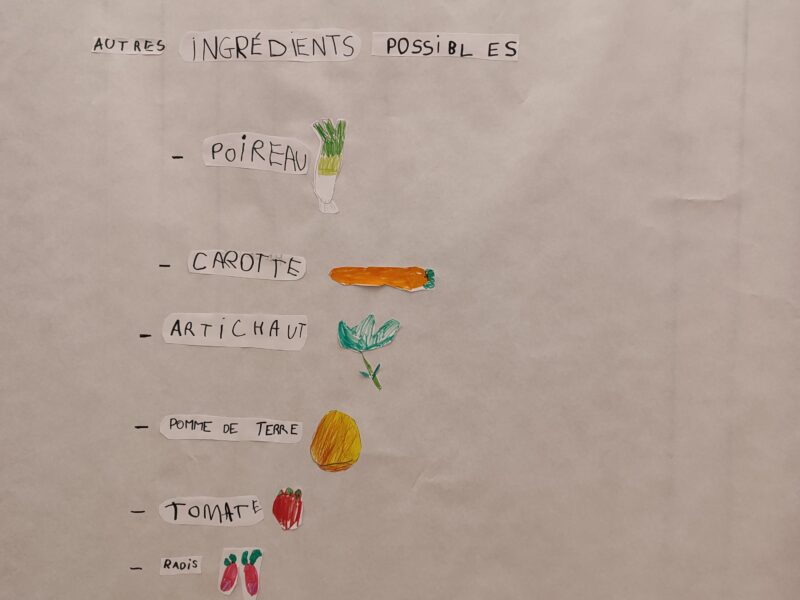 AUTRES INGRÉDIENTS POSSIBLES
- POIREAU
- CAROTTE
- ARTICHAUT
- POMME DE TERRE
- TOMATE
- RADIS